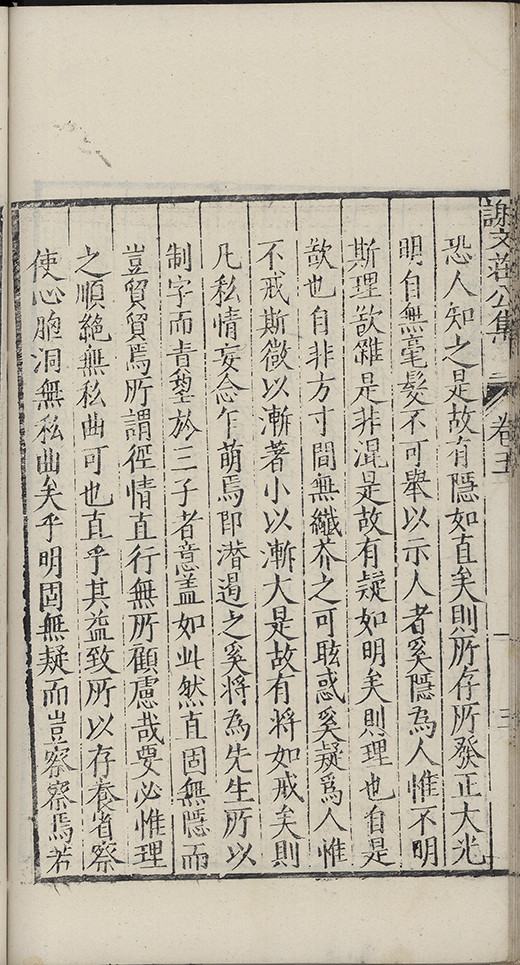 謝文莊公集 卷五
恐人知之是故有隱如直矣則所存所發正大光
明自無毫髮不可舉以示人者奚隱為人惟不明
斯理欲雜是非混是故有疑如明矣則理也自是
欲也自非方寸間無纖芥之可眩惑奚疑爲人惟
不戒斯微以漸著小以漸大是故有將如戒矣則
凡私情妄念乍萌焉即潛遏之奚將為先生所以
制字而責望於三子者意盖如此然直固無隱而
豈貿貿焉所謂徑情直行無所顧慮哉要必惟理
之順絶無私曲可也直乎其益致所以存養省察
使心胞洞無私曲矣乎明固無疑而豈察察焉若